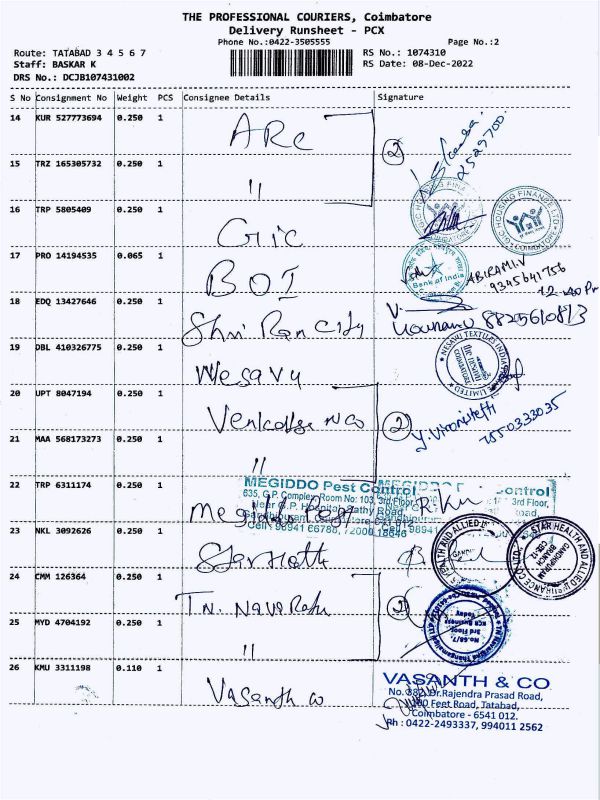 THE PROFESSIONAL COURIERS, Coimbatore
Delivery Runsheet - PCX
Phone No.:0422-3505555
Page No.:2
Route: TATABAD 3 4 5 6 7
Staff: BASKAR K
DRS No.: DCJB107431002
RS No.: 1074310
RS Date: 08-Dec-2022
S No Consignment No Weight PCS Consignee Details Signature
14 KUR 527773694 0.250 1 ARC 2
15 TRZ 165305732 0.250 1 "
16 TRP 5805409 0.250 1 Gic
GIC HOUSING FINANCE LTD
COIMBATORE
17 PRO 14194535 0.065 1 BOI
Bank of India
ABIRAMI.V
9345641756
12.40 Pm
18 EDQ 13427646 0.250 1 Shri Ram City
8825610813
19 DBL 410326775 0.250 1 Nesavu
NESAVU TEXTILES INDIA
20 UPT 8047194 0.250 1 2
7550333035
21 MAA 568173273 0.250 1 "
22 TRP 6311174 0.250 1 Megiddo Pest
MEGIDDO Pest Control
635, G.P. Complex, Room No: 103, 3rd Floor,
Near G.P. Hospital, Sathy Road,
23 NKL 3092626 0.250 1
STAR HEALTH AND ALLIED
24 CMM 126364 0.250 1 T.N. 2
No.68/7,
3rd Floor,
25 MYD 4704192 0.250 1 "
26 KMU 3311198 0.110 1 Vasanth co
VASANTH & CO
Dr.Rajendra Prasad Road,
100 Feet Road, Tatabad,
Coimbatore - 6541 012.
Ph : 0422-2493337, 994011 2562